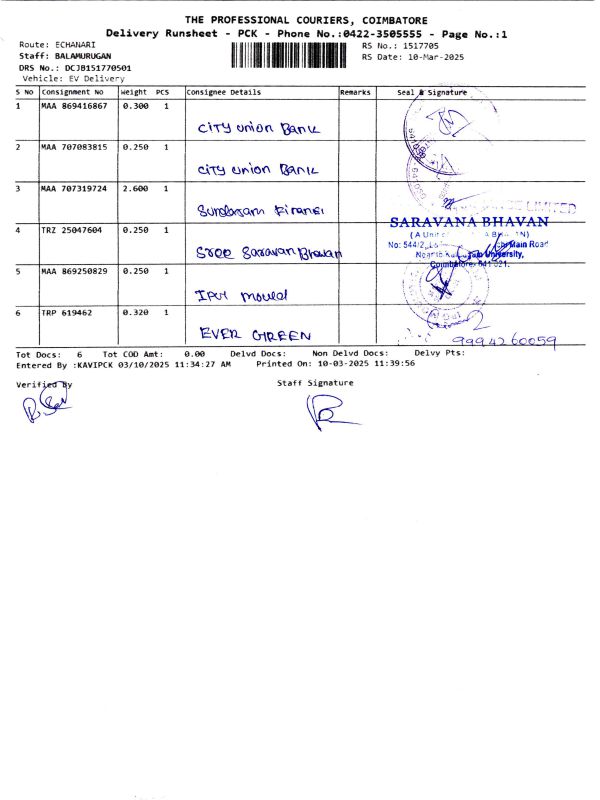 THE PROFESSIONAL COURIERS, COIMBATORE
Delivery Runsheet - PCK - Phone No.:0422-3505555 - Page No.:1
Route: ECHANARI
RS No.: 1517705
Staff: BALAMURUGAN
RS Date: 10-Mar-2025
DRS No.: DCJB151770501
Vehicle: EV Delivery
S No Consignment No Weight PCS Consignee Details Remarks Seal & Signature
1 MAA 869416867 0.300 1
CITY Union Bank
2 MAA 707083815 0.250 1
CITY Union Bank
3 MAA 707319724 2.600 1
Sundaram
LIMITED
SARAVANA BHAVAN
4 TRZ 25047604 0.250 1
(A Unit
No: 544/2, Main Road
Sree Saravan Bhavan
University,
Coimbatore - 641 021.
5 MAA 869250829 0.250 1
mould
6 TRP 619462 0.320 1
EVER GREEN
9994260059
Tot Docs: 6 Tot COD Amt: 0.00 Delvd Docs: Non Delvd Docs: Delvy Pts:
Entered By :KAVIPCK 03/10/2025 11:34:27 AM Printed On: 10-03-2025 11:39:56
Verified By
Staff Signature